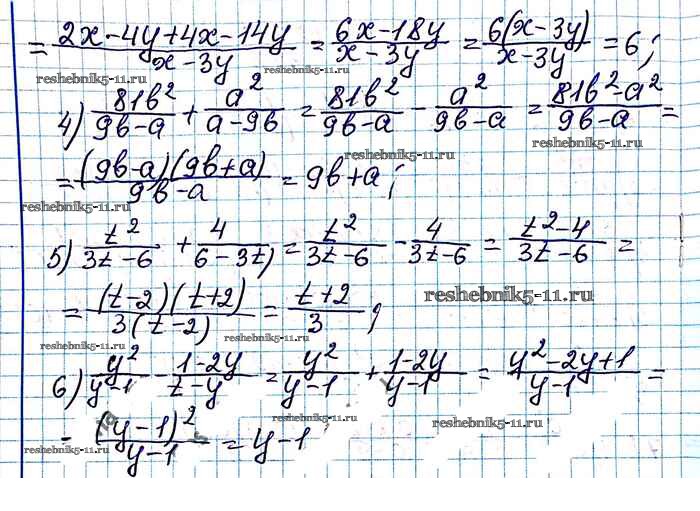 = (2x-4y+4x-14y)/(x-3y) = (6x-18y)/(x-3y) = (6(x-3y))/(x-3y) = 6;
reshebnik5-11.ru reshebnik5-11.ru
4) 81b²/(9b-a) + a²/(a-9b) = 81b²/(9b-a) - a²/(9b-a) = (81b²-a²)/(9b-a) =
reshebnik5-11.ru reshebnik5-11.ru
= ((9b-a)(9b+a))/(9b-a) = 9b+a;
reshebnik5-11.ru
reshebnik5-11.ru
5) t²/(3t-6) + 4/(6-3t) = t²/(3t-6) - 4/(3t-6) = (t²-4)/(3t-6) =
= ((t-2)(t+2))/(3(t-2)) = (t+2)/3;
reshebnik5-11.ru
reshebnik5-11.ru reshebnik5-11.ru
6) y²/(y-1) - (1-2y)/(t-y) = y²/(y-1) + (1-2y)/(y-1) = (y²-2y+1)/(y-1) =
= (y-1)²/(y-1) = y-1
reshebnik5-11.ru reshebnik5-11.ru
reshebnik5-11.ru